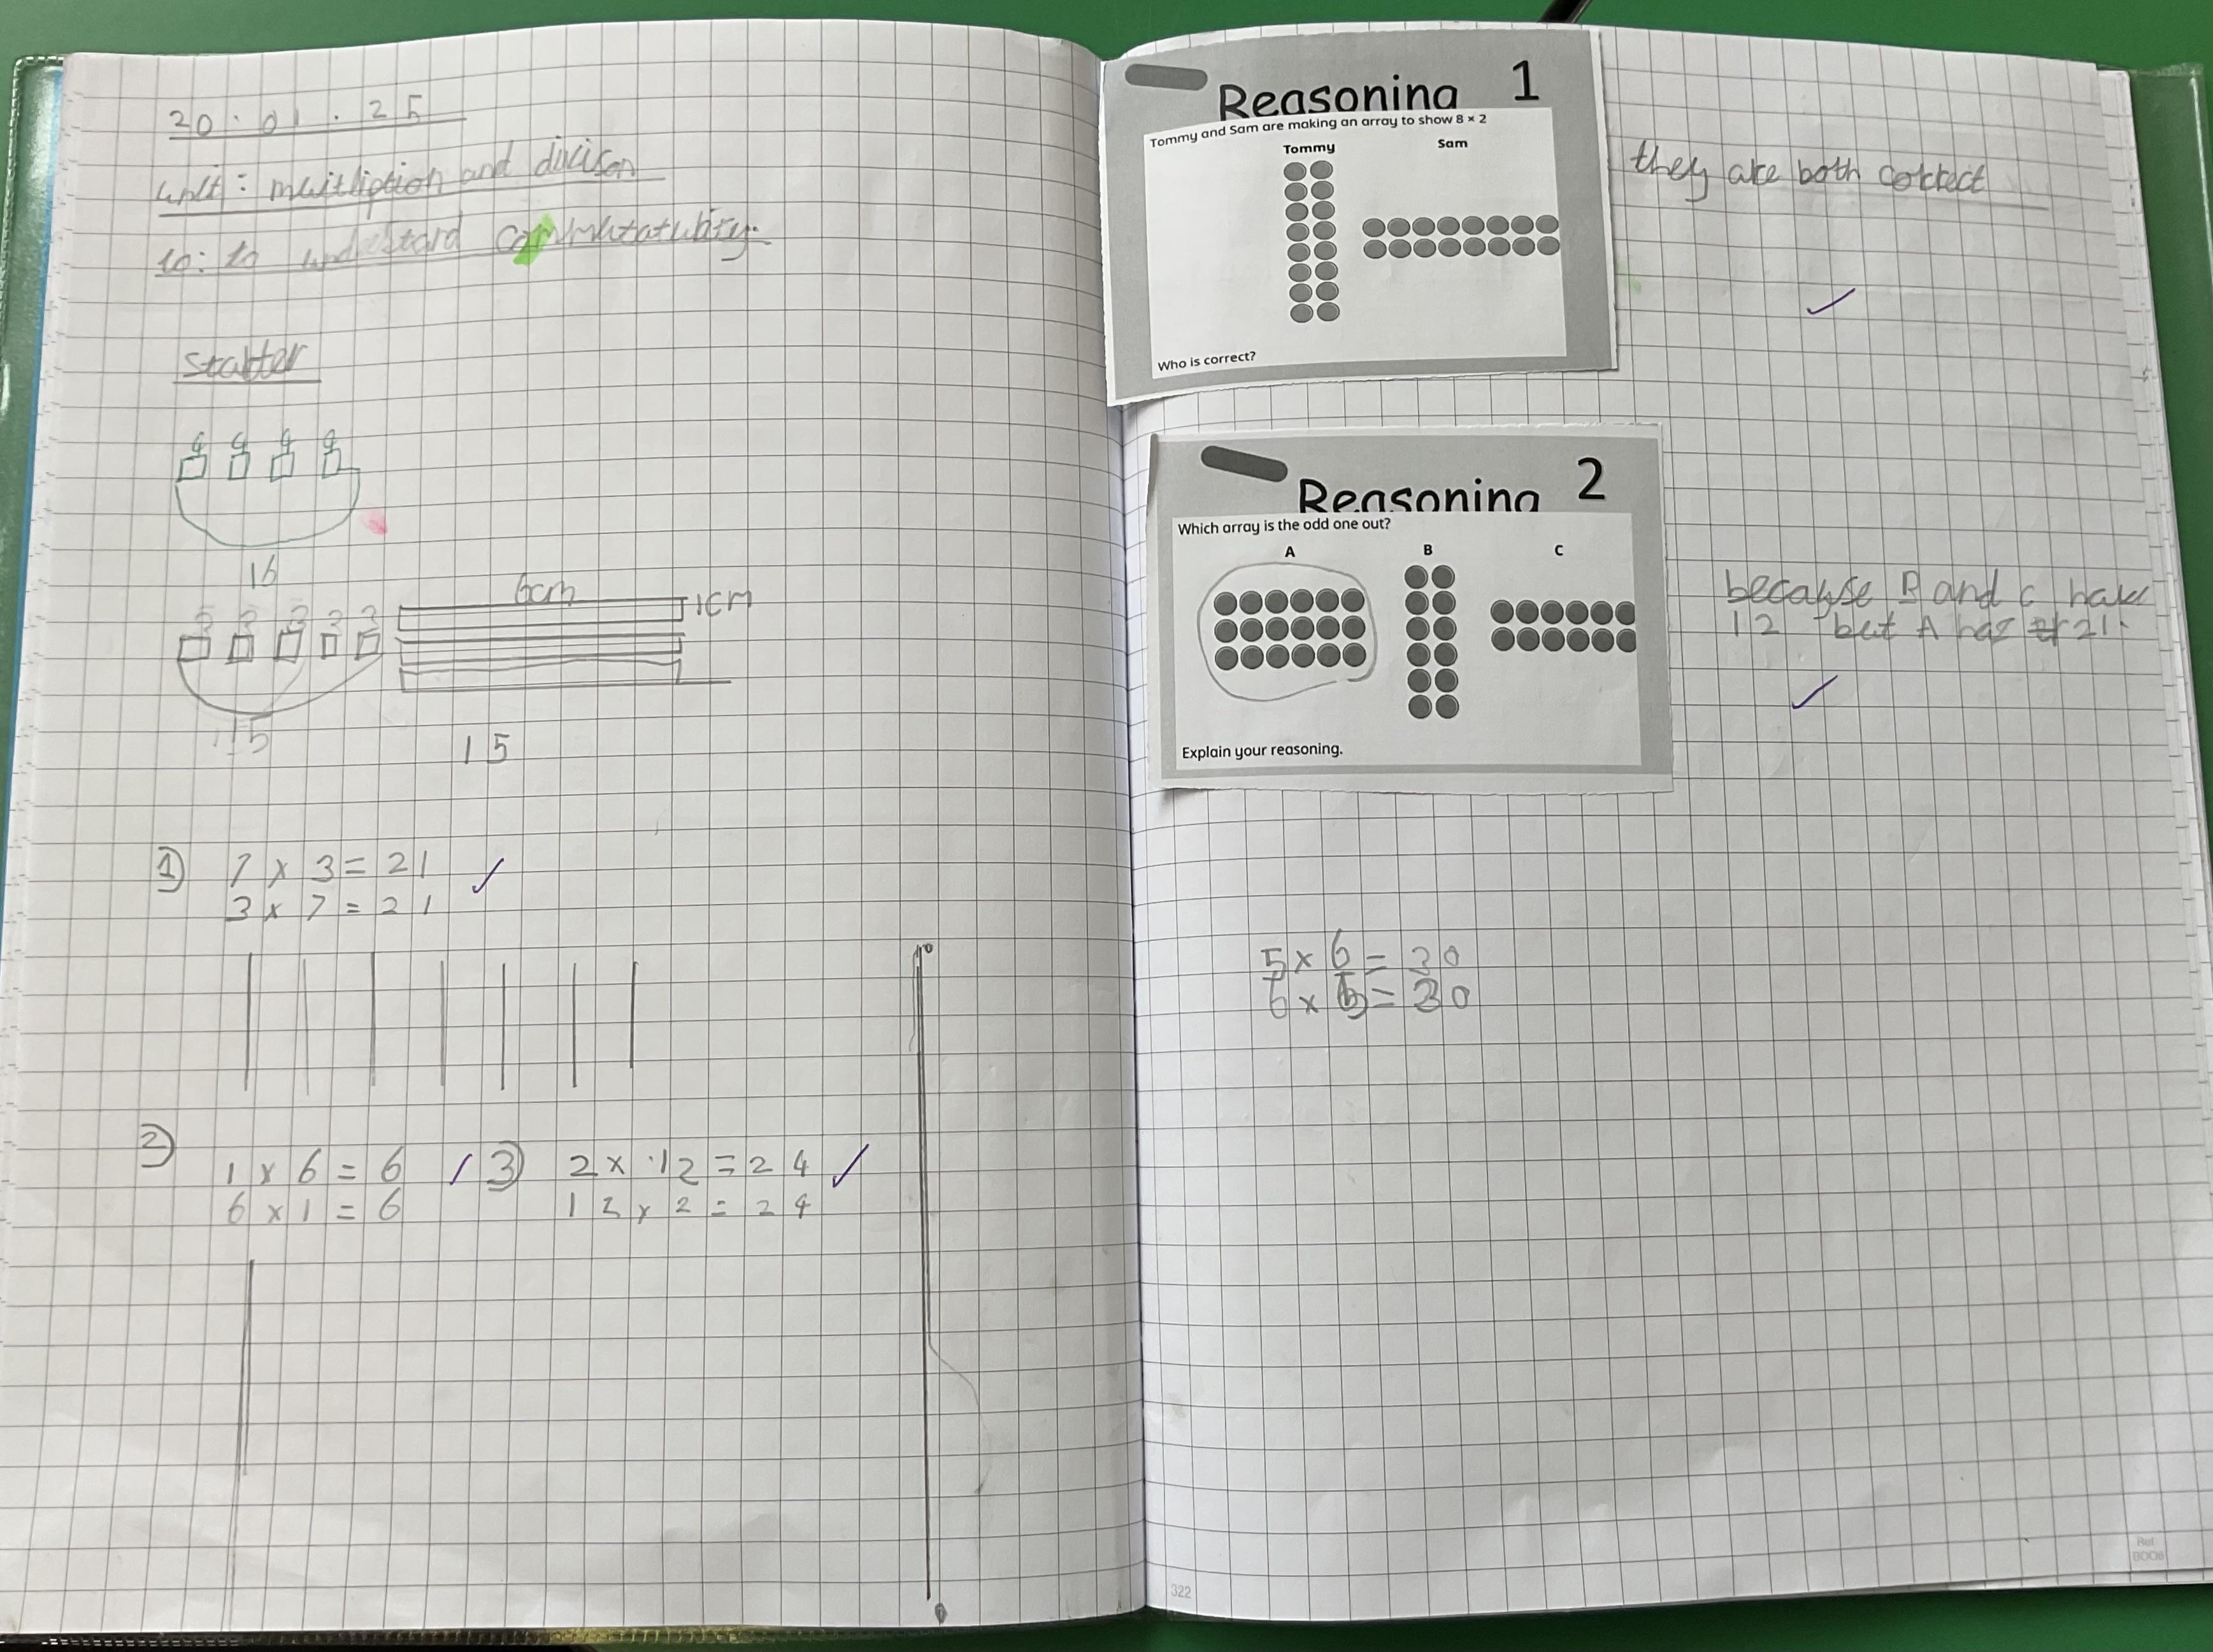 20.01.25
unit: multiption and divison
to understand commutatubity.
Starter
4 4 4 4
16
3 3 3 3 3
6cm
1cm
15
15
1) 7 x 3 = 21
3 x 7 = 21
2) 1 x 6 = 6
6 x 1 = 6
3) 2 x 12 = 24
12 x 2 = 24
Reasoning 1
Tommy and Sam are making an array to show 8 × 2
Tommy Sam
Who is correct?
they are both correct
Reasoning 2
Which array is the odd one out?
A B C
Explain your reasoning.
because B and c have
12 but A has 21.
5 x 6 = 30
6 x 5 = 30
322
Ref